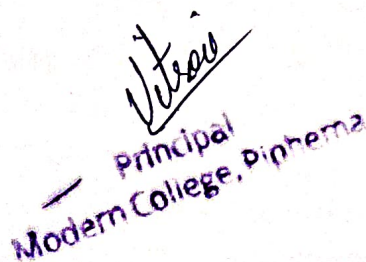 Principal
Modern College, Piphema